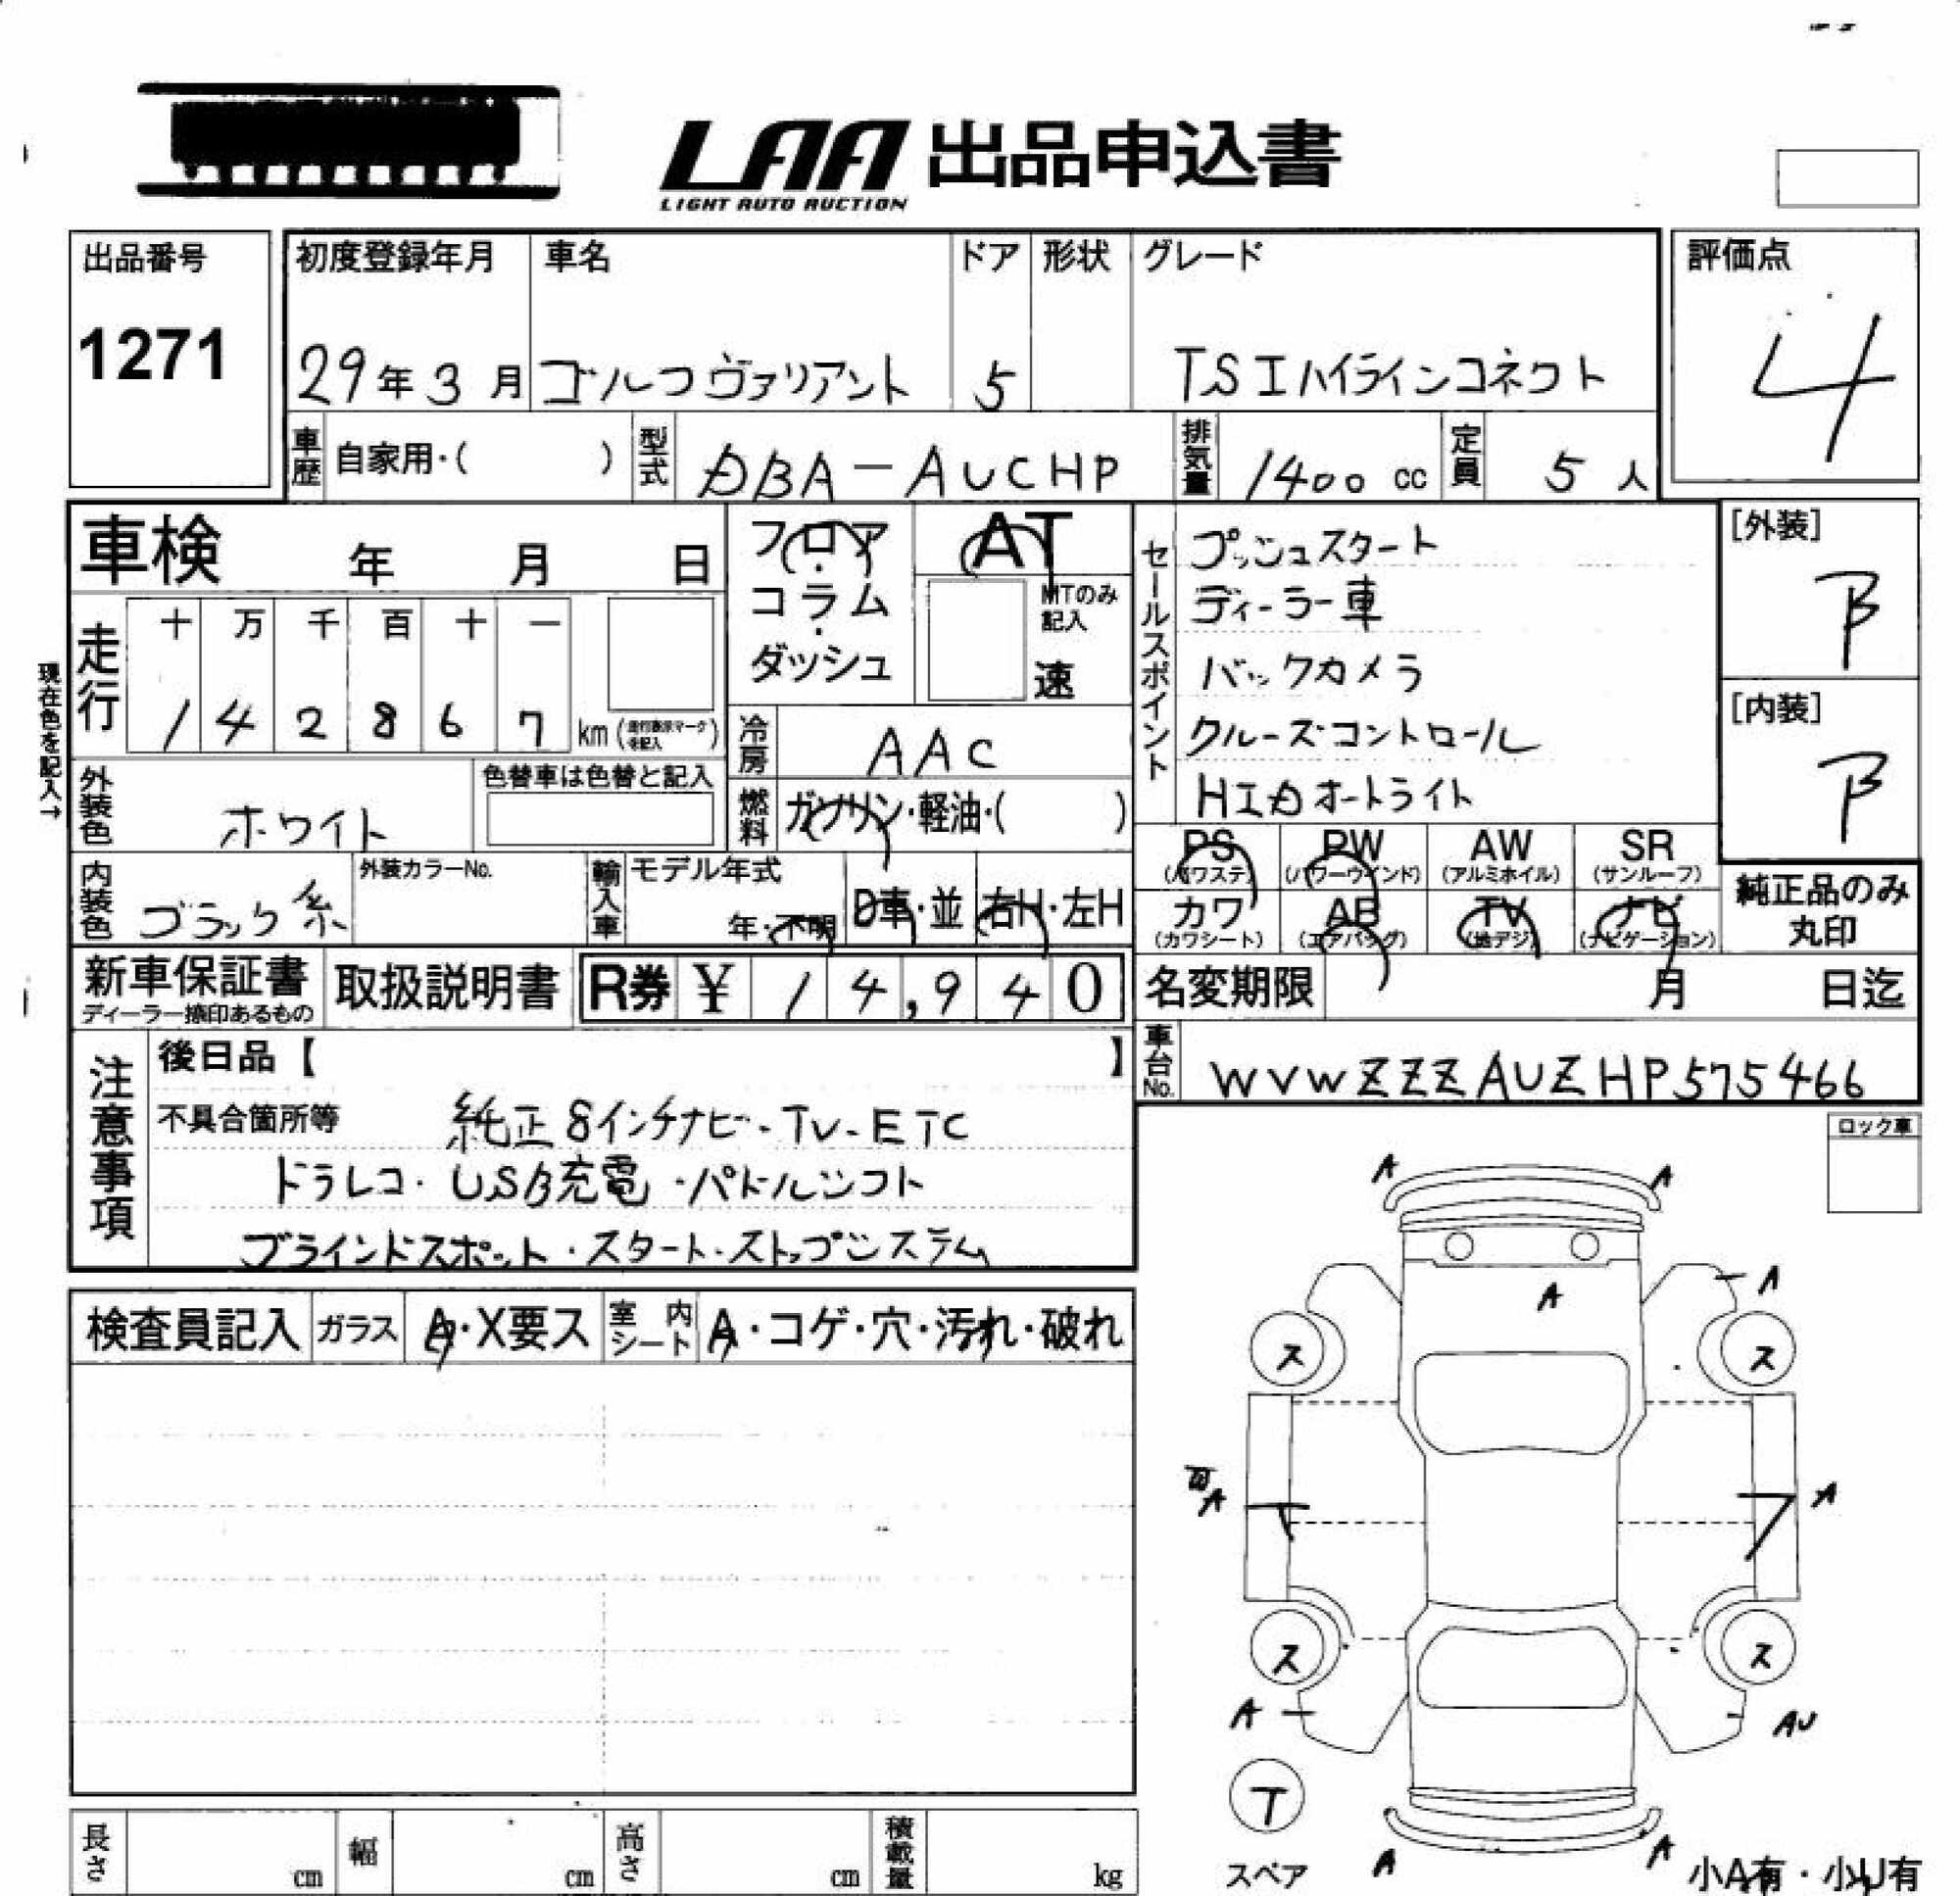 LAA 出品申込書
LIGHT AUTO AUCTION
出品番号
1271
初度登録年月 車名 ドア 形状 グレード
29年3月 ゴルフヴァリアント 5 TSIハイラインコネクト
評価点
4
車歴 自家用・( ) 型式 DBA-AUCHP 排気量 1400 cc 定員 5 人
車検 年 月 日
フロア・コラム・ダッシュ
AT
MTのみ記入
速
現在色を記入→
走行 十 万 千 百 十 一
1 4 2 8 6 7 km
冷房 AAC
外装色 ホワイト 色替車は色替と記入
燃料 ガソリン・軽油・( )
内装色 ブラック系 外装カラーNo. 輸入車 モデル年式 年・不明 D車・並 右H・左H
セールスポイント
プッシュスタート
ディーラー車
バックカメラ
クルーズコントロール
HIDオートライト
[外装]
B
[内装]
B
PS PW AW SR
(パワステ) (パワーウインド) (アルミホイル) (サンルーフ)
カワ AB TV ナビ
(カワシート) (エアバッグ) (地デジ) (ナビゲーション)
純正品のみ丸印
新車保証書 取扱説明書 R券 ¥ 14,940
ディーラー捺印あるもの
名変期限 月 日迄
車台No. WVWZZZAUZHP575466
注意事項
後日品【 】
不具合箇所等 純正8インチナビ・TV・ETC
ドラレコ・USB充電・パドルシフト
ブラインドスポット・スタートストップシステム
ロック車
検査員記入 ガラス A・X要ス 室内シート A・コゲ・穴・汚れ・破れ
A A
A A
ス ス
A A
ス ス
A AU
T
スペア
A A
小A有・小U有
長さ cm 幅 cm 高さ cm 積載量 kg